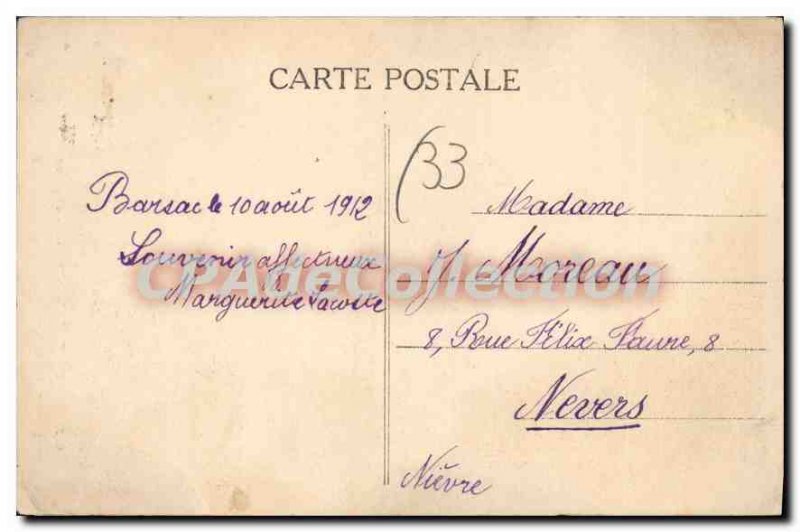 CARTE POSTALE
(33
Barsac le 10 août 1912
Souvenir affectueux
Marguerite Lacoste
Madame
J Moreau
8, Rue Félix Faure, 8
Nevers
Nièvre
CPAdeCollection